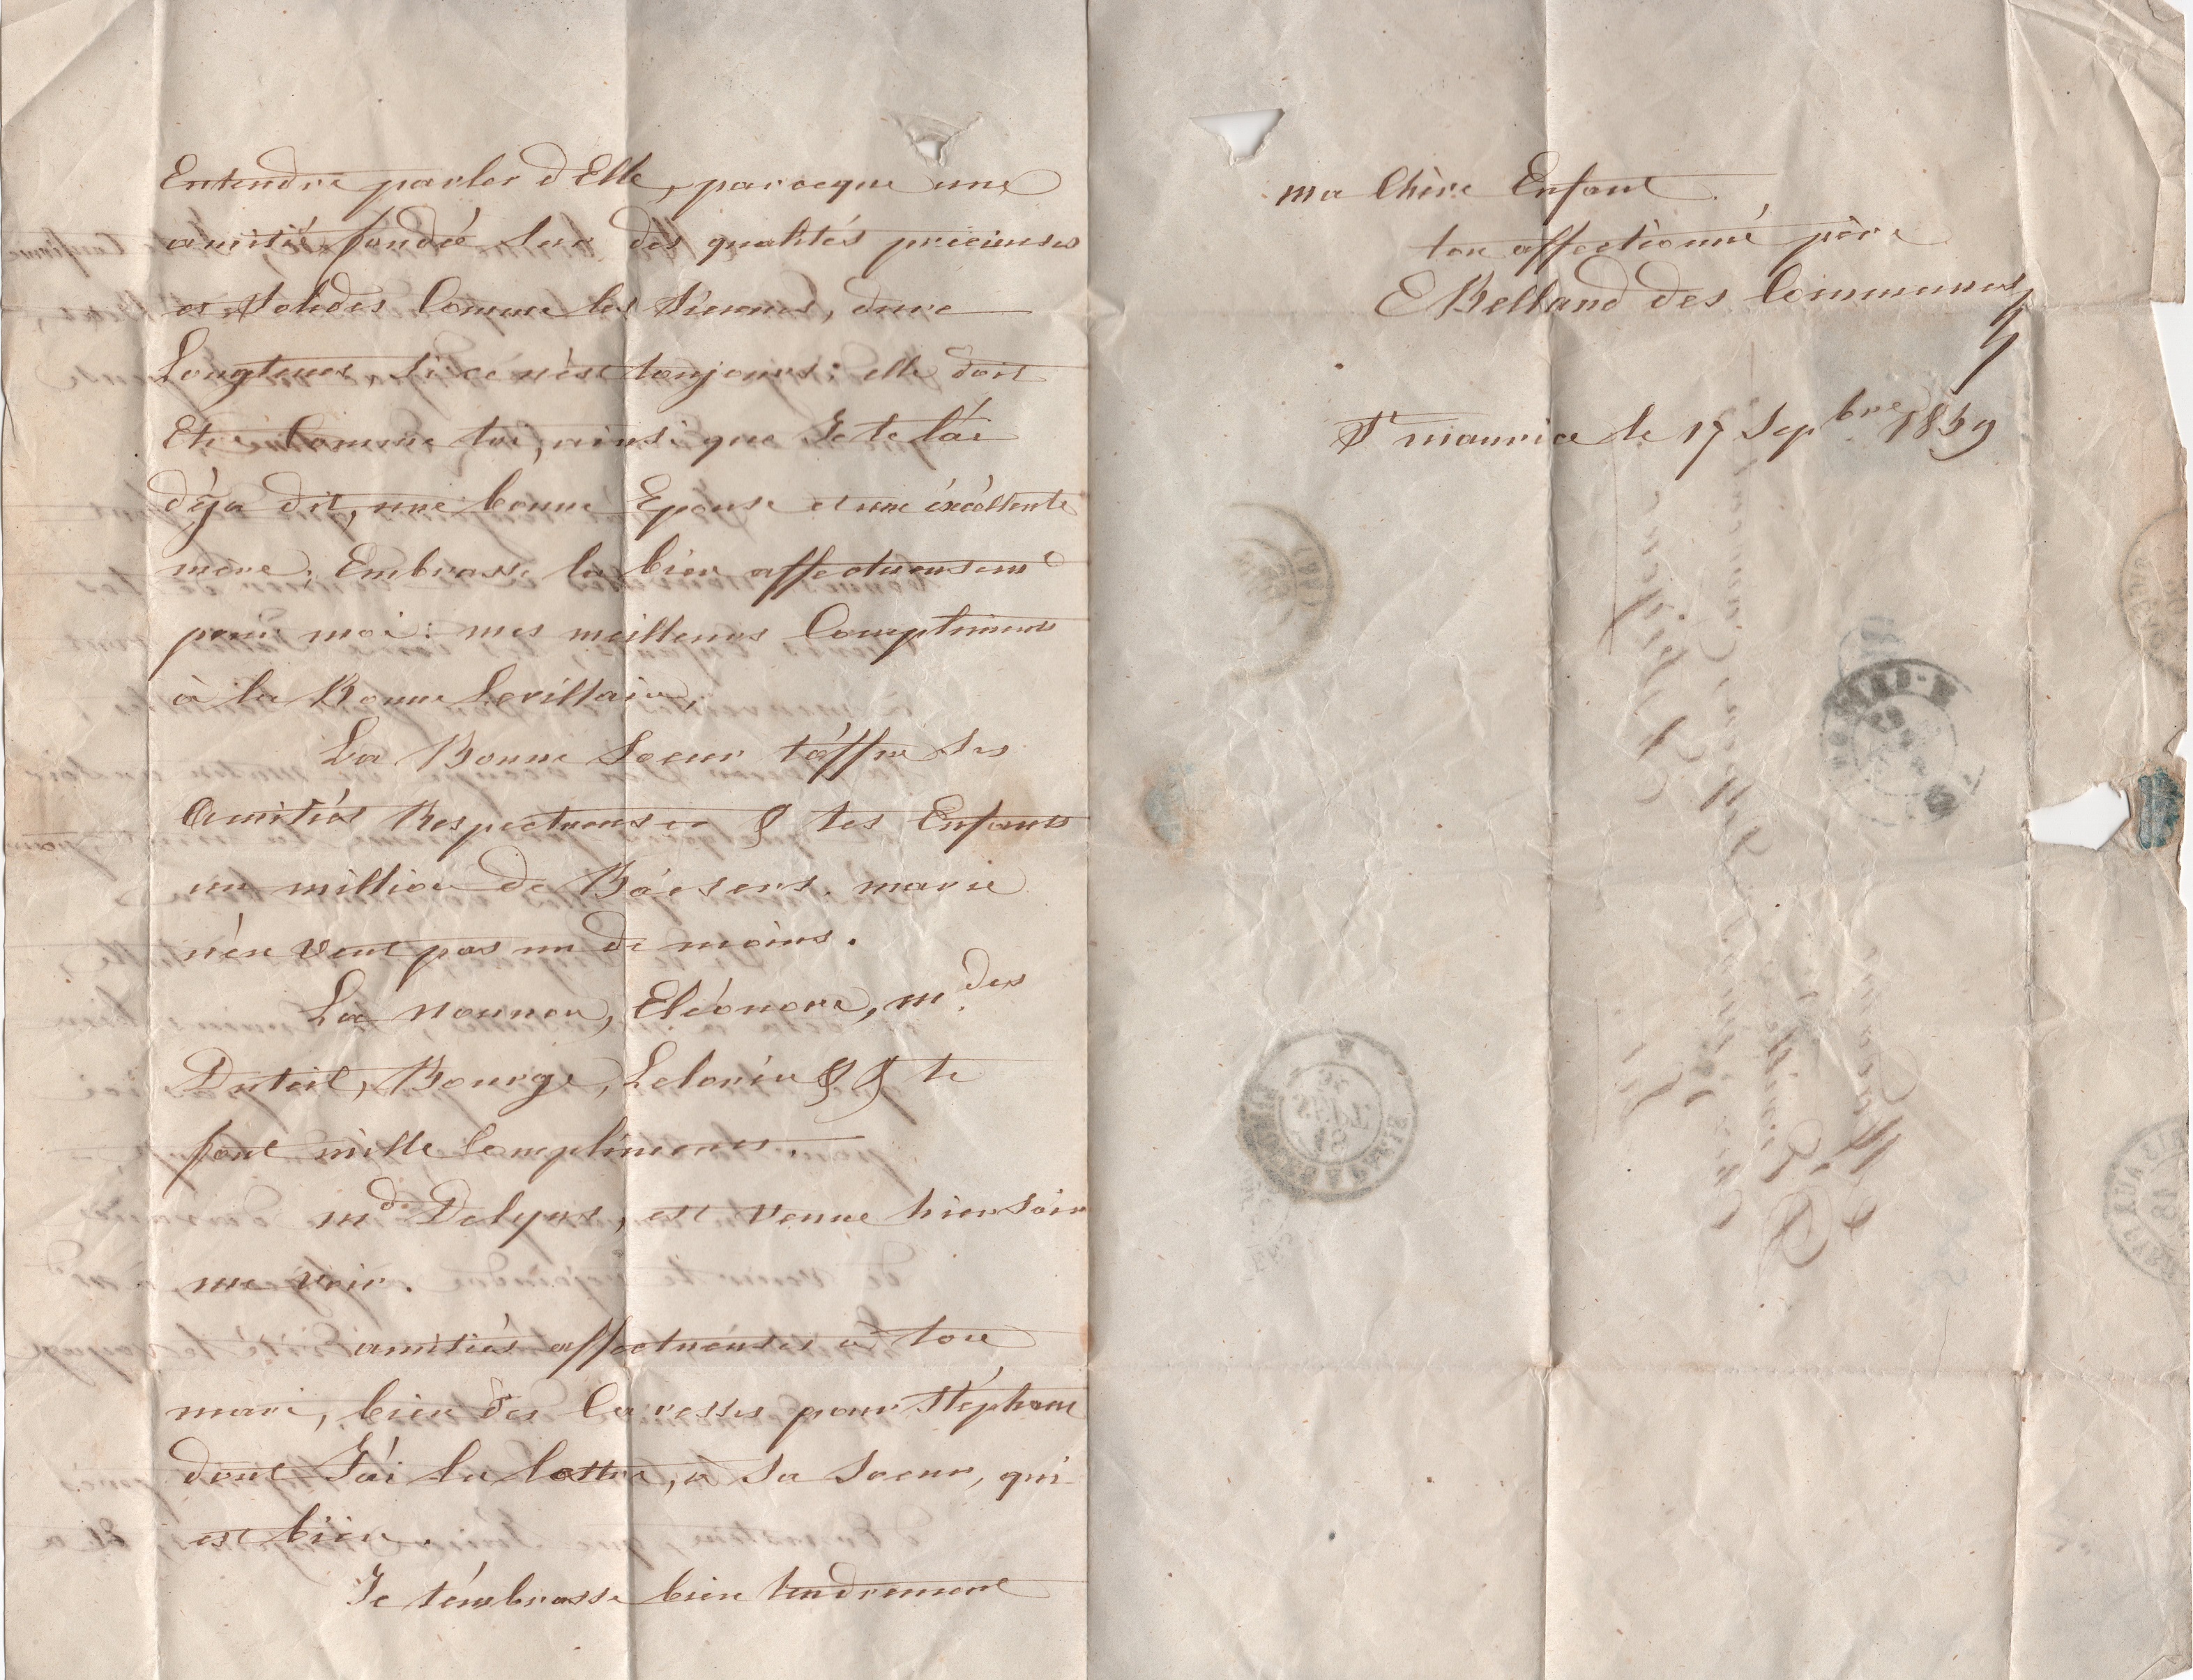 Entendre parler d'Elle, parceque une
amitié fondée sur des qualités précieuses
et solides Comme les siennes, dure
Longtems si ce n'est toujours: elle doit
Etre Comme toi, ainsi que Je te l'ai
déja dit, une bonne Epouse et une éxcéllente
mère; Embrasse la bien affectueusemt
pour moi: mes meilleurs Complimens
à la Bonne Levillain,
La Bonne Soeur t'offre ses
Amitiés Respectueuses & tes Enfans
un million de Baisers. marie
n'en veut pas un de moins.
La nounou, Eléonore, mdes
Duteil, Bourge, Lelorin & & te
font mille Complimens.
mde Delyus, est venue hier soir
me voir.
amitiés affectueuses à ton
mari, bien des Caresses pour Stéphane
dont J'ai lu la lettre, à sa soeur, qui
est bien.
Je t'embrasse bien tendrement
ma Chère Enfant
ton affectionné père
E Belland des Communes
St maurice le 17 Sepbre 1859